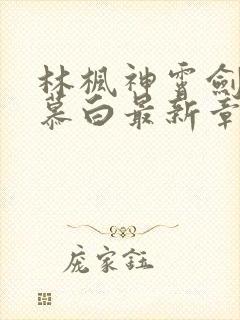 林楓神霄劍
慕白最新章
庞家钰